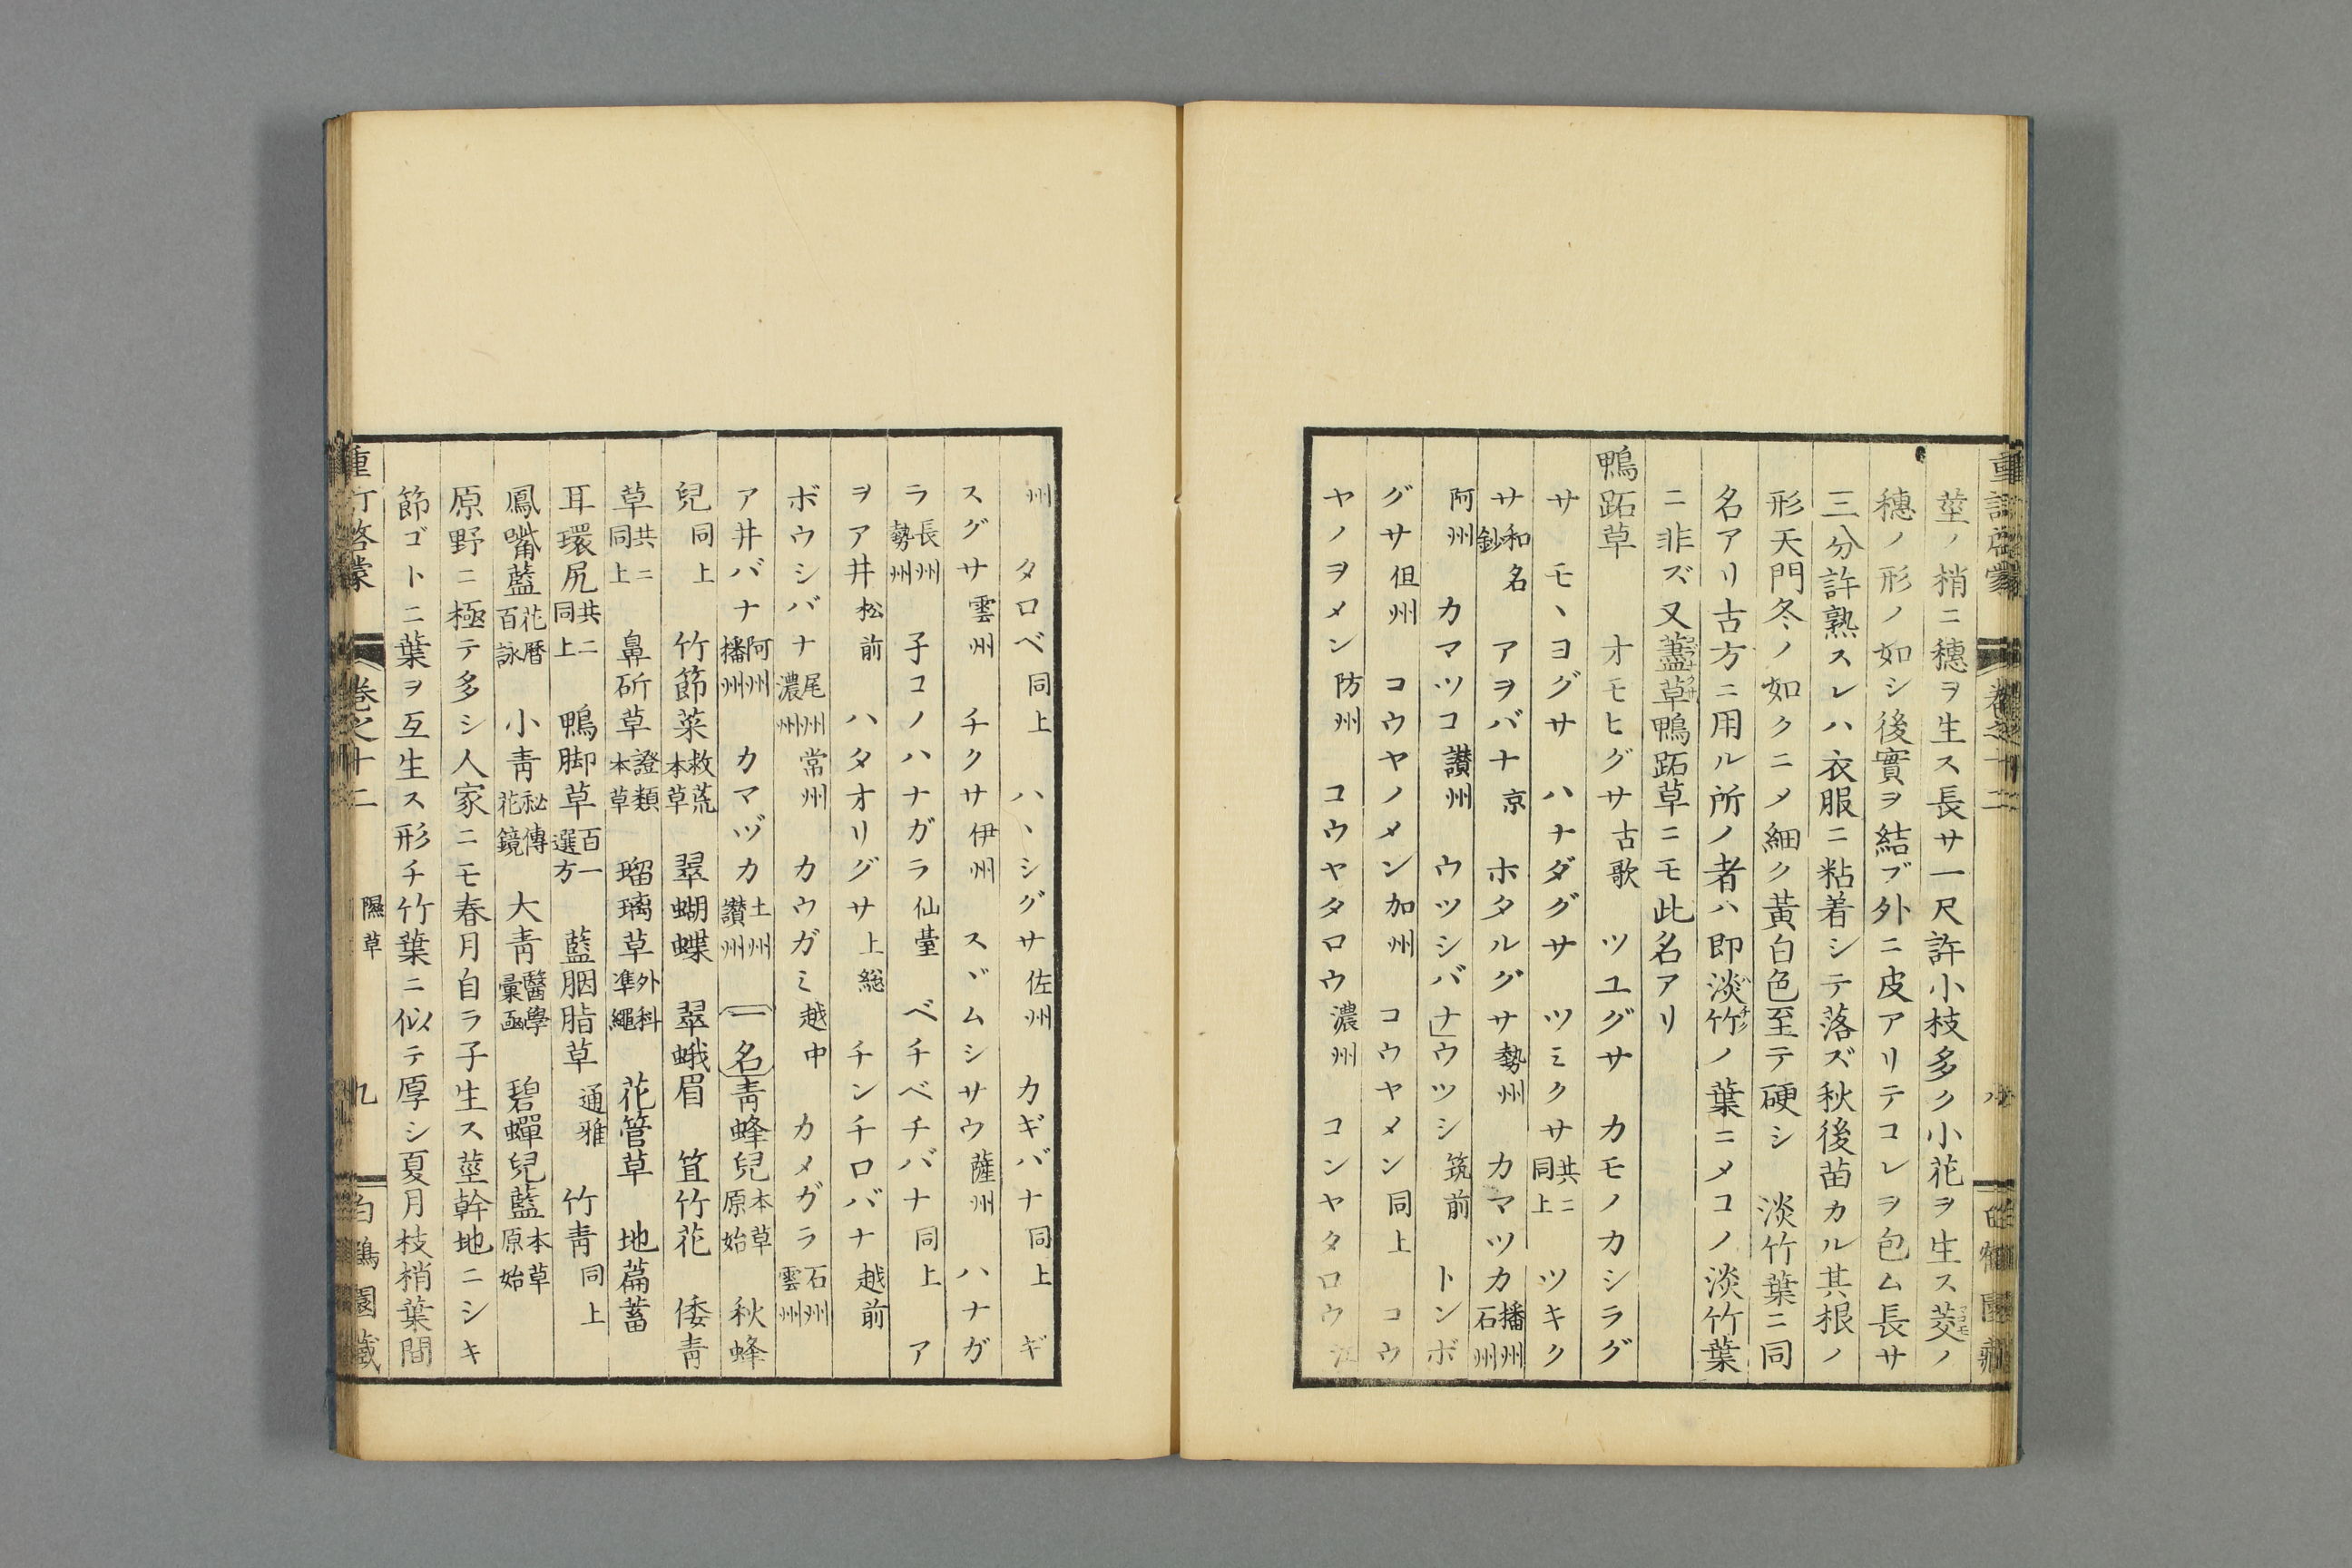 莖ノ梢ニ穗ヲ生ス長サ一尺許小枝多ク小花ヲ生ス茭ノ
穗ノ形ノ如シ後實ヲ結ブ外ニ皮アリテコレヲ包ム長サ
三分許熟スレハ衣服ニ粘着シテ落ズ秋後苗カル其根ノ
形天門冬ノ如クニメ細ク黃白色至テ硬シ 淡竹葉ニ同
名アリ古方ニ用ル所ノ者ハ即淡竹ノ葉ニメコノ淡竹葉
ニ非ズ又藎草鴨跖草ニモ此名アリ
鴨跖草 オモヒグサ古歌 ツユグサ カモノカシラグ
サ モヽヨグサ ハナダグサ ツミクサ共ニ同上 ツキク
サ和名鈔 アヲバナ京 ホタルグサ勢州 カマツカ播州石州
阿州 カマツコ讃州 ウツシバナ ウツシ筑前 トンボ
グサ但州 コウヤノメン加州 コウヤメン同上 コウ
ヤノヲメン防州 コウヤタロウ濃州 コンヤタロウ
州 タロベ同上 ハヽシグサ佐州 カギバナ同上 ギ
スグサ雲州 チクサ伊州 スヾムシサウ薩州 ハナガ
ラ長州勢州 子コノハナガラ仙臺 ベチベチバナ同上 ア
ヲア井松前 ハタオリグサ上総 チンチロバナ越前
ボウシバナ尾州濃州常州 カウガミ越中 カメガラ石州雲州
ア井バナ阿州播州 カマヅカ土州讃州 一名青蜂兒本草原始 秋蜂
兒同上 竹節菜救荒本草 翠蝴蝶 翠蛾眉 笡竹花 倭青
草共ニ同上 鼻斫草證類本草 瑠璃草外科準繩 花管草 地萹蓄
耳環尻共二同上 鴨脚草百一選方 藍胭脂草通雅 竹青同上
鳳嘴藍花暦百詠 小青秘傳花鏡 大青醫學彙函 碧蟬兒藍本草原始
原野ニ極テ多シ人家ニモ春月自ラ子生ス莖幹地ニシキ
節ゴトニ葉ヲ互生ス形チ竹葉ニ似テ厚シ夏月枝梢葉間
卷之十二 隰草 九